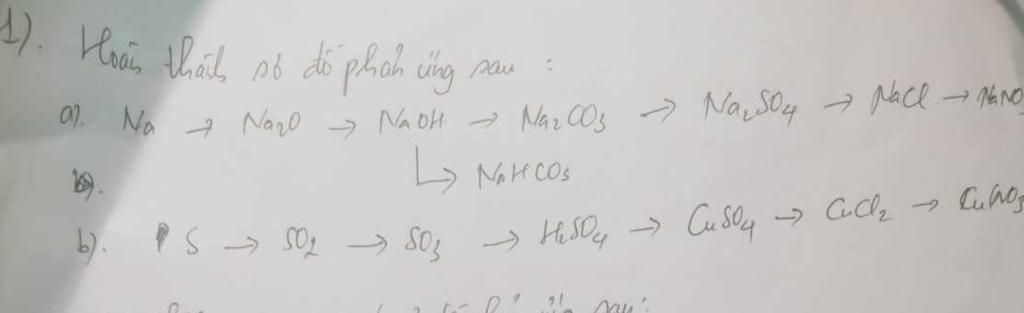 1). Hoàn thành sơ đồ phản ứng sau :
a). Na → Na2O → NaOH → Na2CO3 → Na2SO4 → NaCl → NaNO
↳ NaHCO3
b). S → SO2 → SO3 → H2SO4 → CuSO4 → CuCl2 → CuNO3
sau: